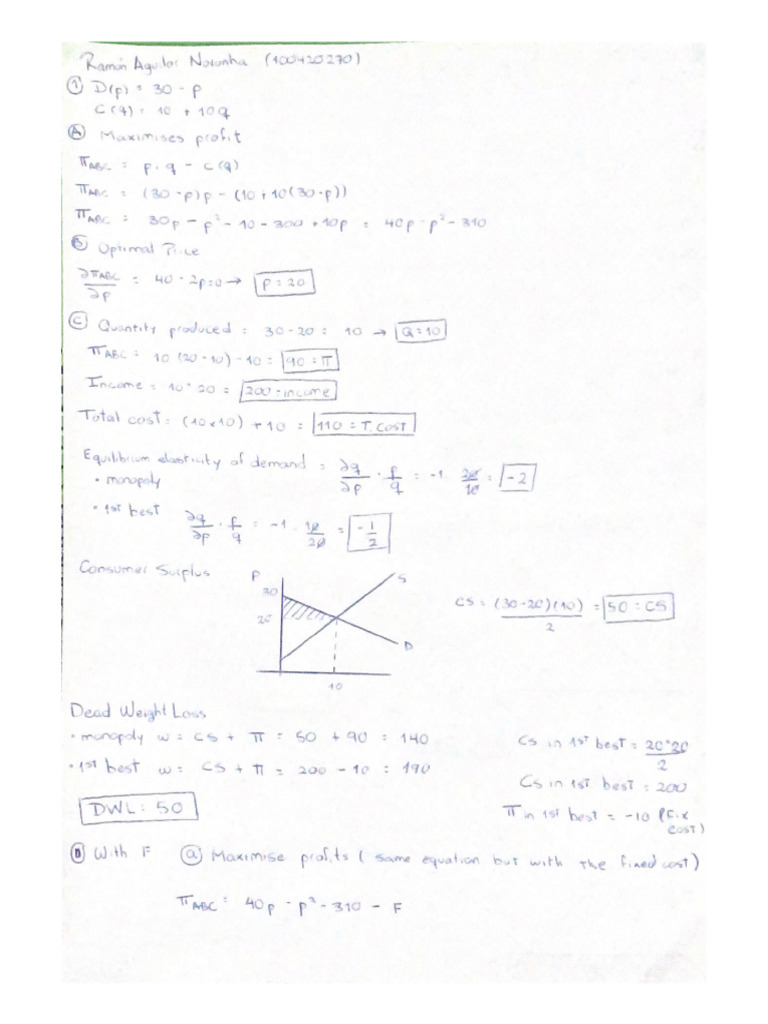 Ramón Aguilar Noronha (100420270)
① D(p) = 30 - p
C(q) = 10 + 10q
Ⓐ Maximises profit
π_ABC = p · q - C(q)
π_ABC = (30 - p)p - (10 + 10(30 - p))
π_ABC = 30p - p² - 10 - 300 + 10p = 40p - p² - 310
Ⓑ Optimal Price
∂π_ABC/∂p = 40 - 2p = 0 → P = 20
Ⓒ Quantity produced = 30 - 20 = 10 → Q = 10
π_ABC = 10 (20 - 10) - 10 = 90 = π
Income = 10 * 20 = 200 = income
Total cost = (10 x 10) + 10 = 110 = T. COST
Equilibrium elasticity of demand = ∂q/∂p · p/q = -1 · 20/10 = -2
• monopoly
• 1st best ∂q/∂p · p/q = -1 · 10/20 = -1/2
Consumer Surplus
P
S
30
20
D
10
CS = (30 - 20)(10)/2 = 50 = CS
Dead Weight Loss
• monopoly w = CS + π = 50 + 90 = 140
• 1st best w = CS + π = 200 - 10 = 190
DWL = 50
CS in 1st best = 20*20/2
CS in 1st best = 200
π in 1st best = -10 (Fix cost)
Ⓓ With F ⓐ Maximise profits (same equation but with the fixed cost)
π_ABC = 40p - p² - 310 - F